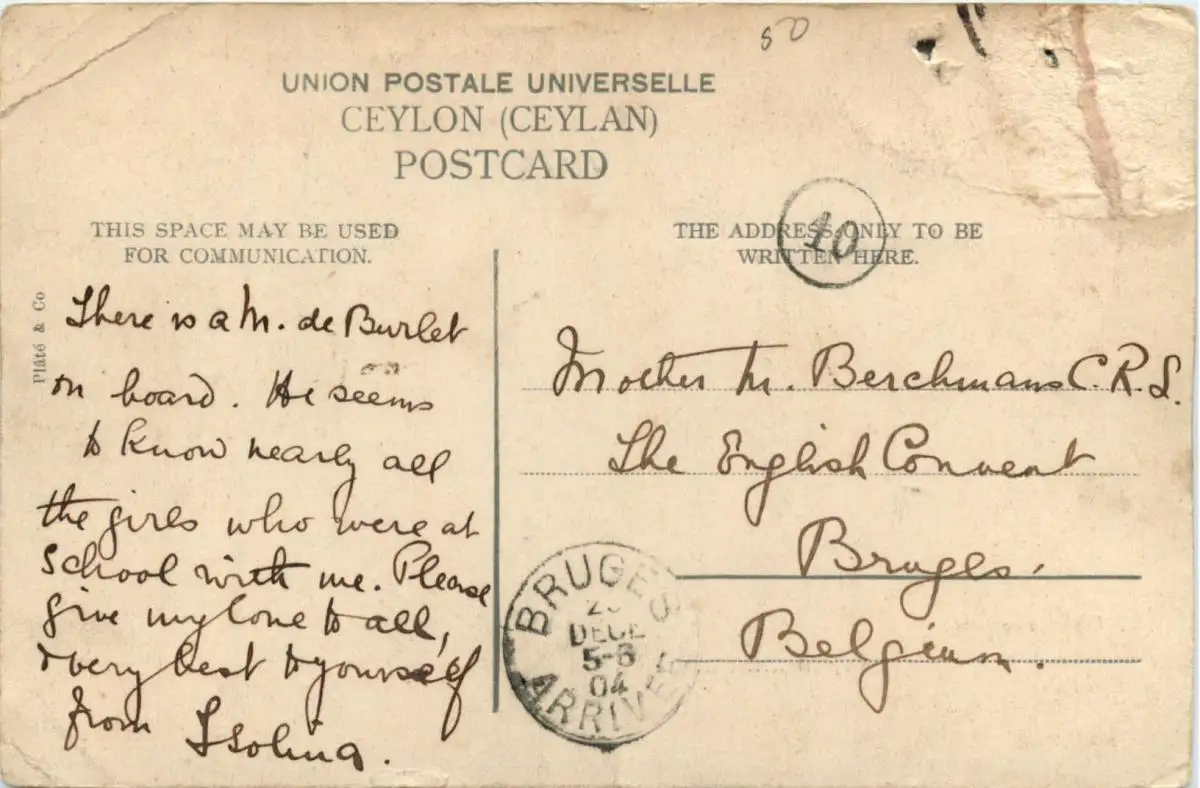 50
UNION POSTALE UNIVERSELLE
CEYLON (CEYLAN)
POSTCARD
THIS SPACE MAY BE USED
FOR COMMUNICATION.
THE ADDRESS ONLY TO BE
WRITTEN HERE.
10
Plâté & Co
There is a M. de Burlet
on board. He seems
to know nearly all
the girls who were at
school with me. Please
give my love to all,
& very best to yourself
from Isolina.
Mother M. Berchmans C.R.L.
The English Convent
Bruges.
Belgium.
BRUGES
DECE
5-6
04
ARRIVEE